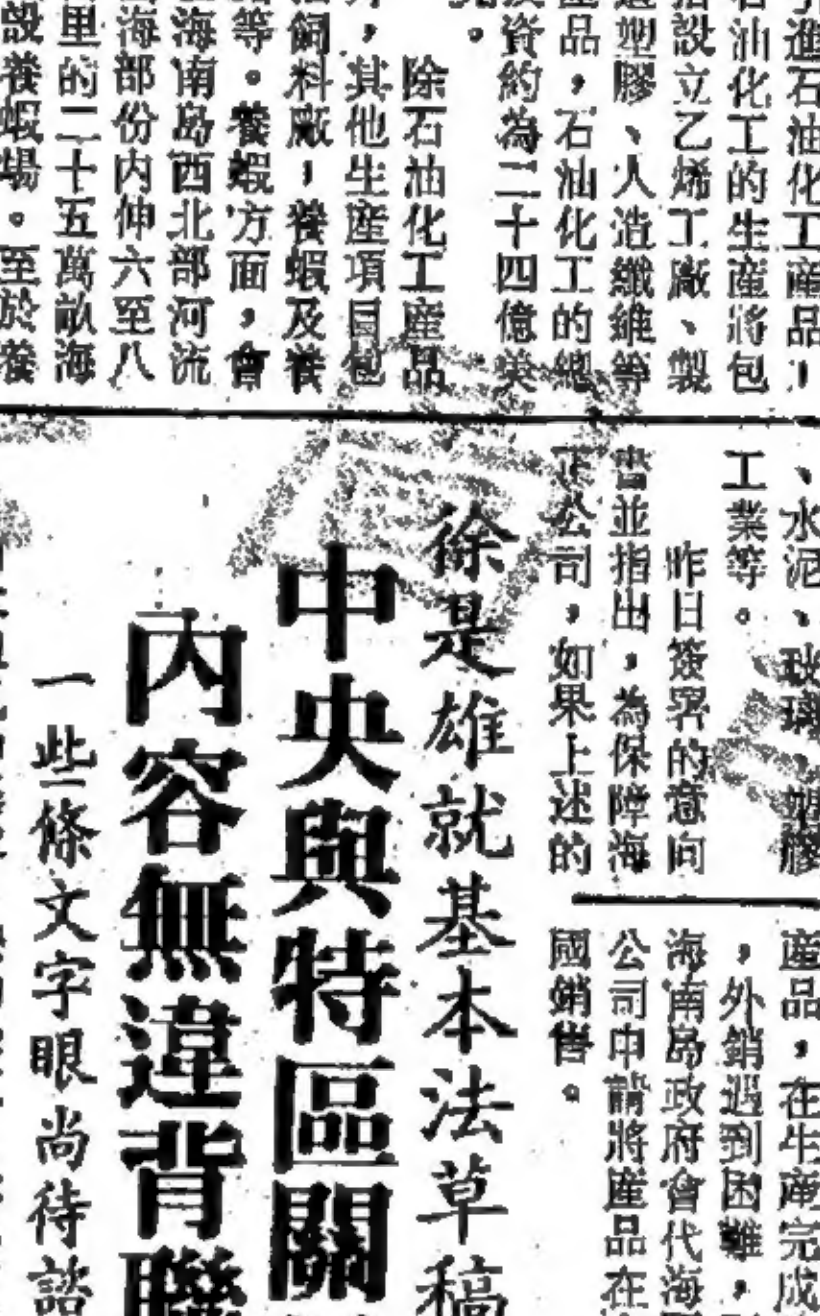 引進石油化工產品，
石油化工的生產將包
括設立乙烯工廠、製
造塑膠、人造纖維等
產品，石油化工的總
投資約為二十四億英
。
除石油化工產品
，其他生產項目包
飼料廠，養蝦及養
等。養蝦方面，會
海南島西北部河流
海部份內伸六至八
里的二十五萬畝海
設養蝦場。至於養
、水泥、玻璃、塑膠
工業等。
昨日簽署的意向
書並指出，為保障海
公司，如果上述的
產品，在生產完成
，外銷遇到困難，
海南島政府會代海
公司申請將產品在
國銷售。
徐是雄就基本法草稿
中央與特區關
內容無違背聯
一些條文字眼尚待諮